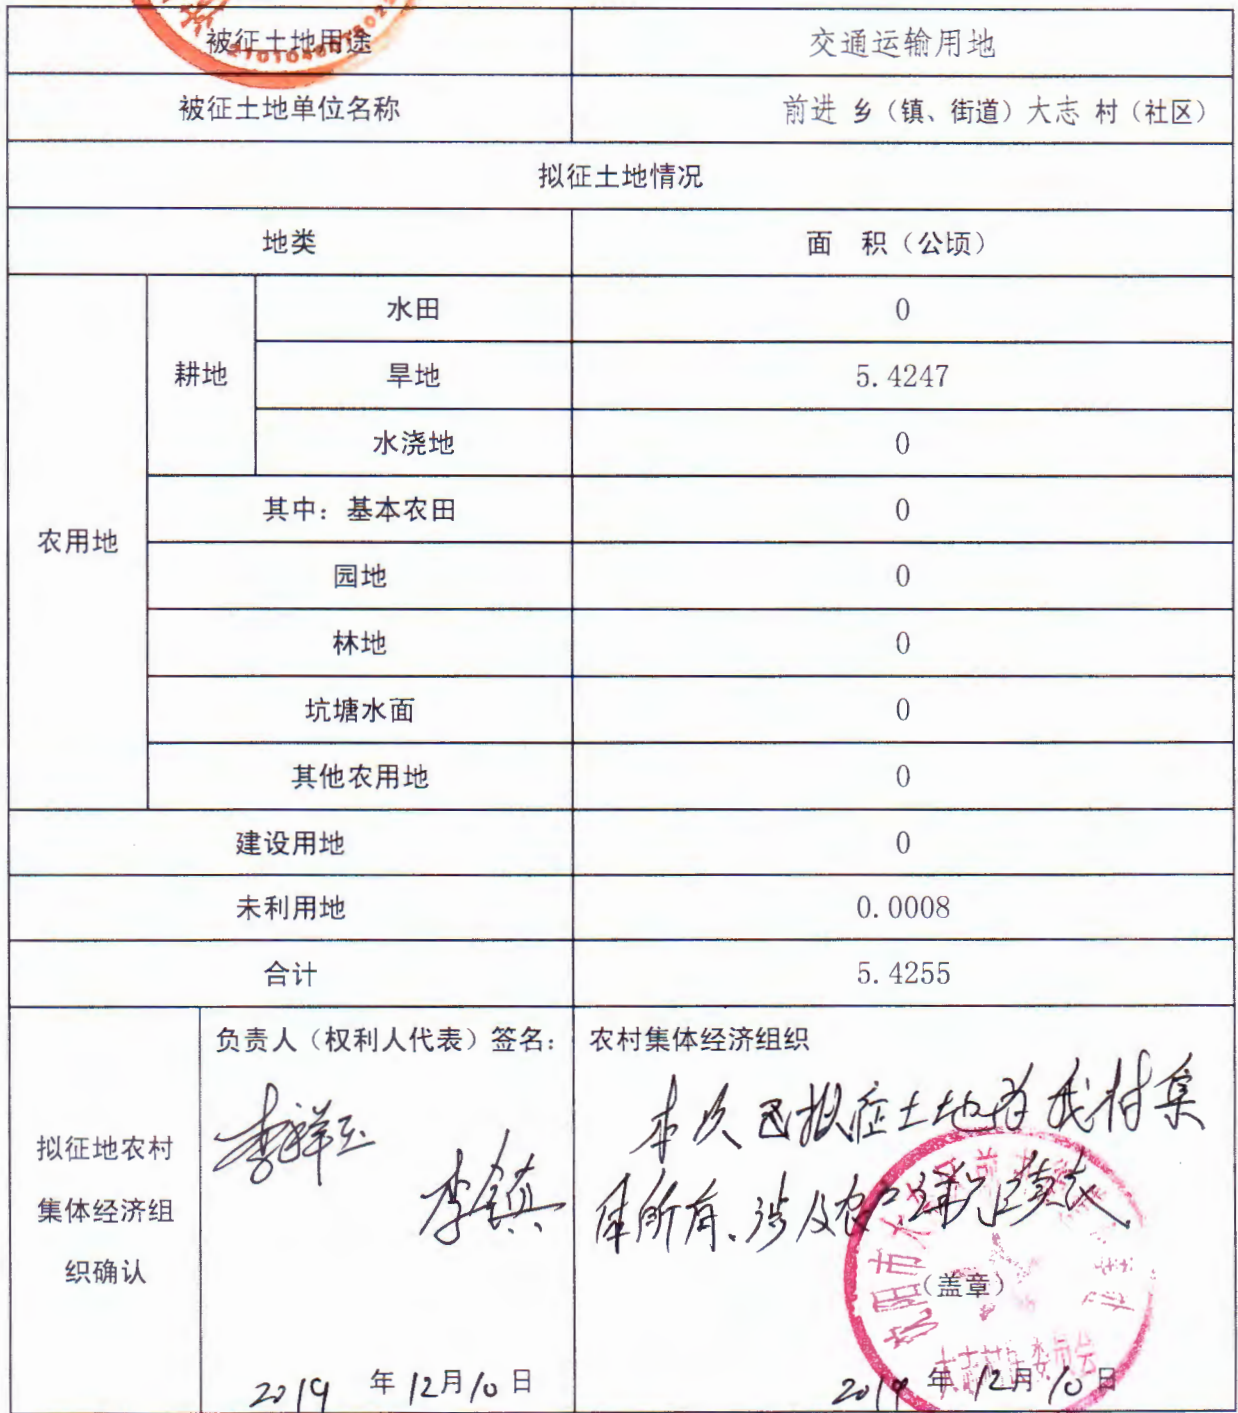 被征土地用途 交通运输用地
被征土地单位名称 前进 乡（镇、街道）大志 村（社区）
拟征土地情况
地类 面 积（公顷）
农用地 耕地 水田 0
旱地 5.4247
水浇地 0
其中：基本农田 0
园地 0
林地 0
坑塘水面 0
其他农用地 0
建设用地 0
未利用地 0.0008
合计 5.4255
拟征地农村
集体经济组
织确认
负责人（权利人代表）签名：
李祥玉
李镇
2019 年 12月10日
农村集体经济组织
本次 拟征土地为我村集
体所有、涉及农户
（盖章）
沈阳市大
大志村民委员会
2019 年 12月 10日